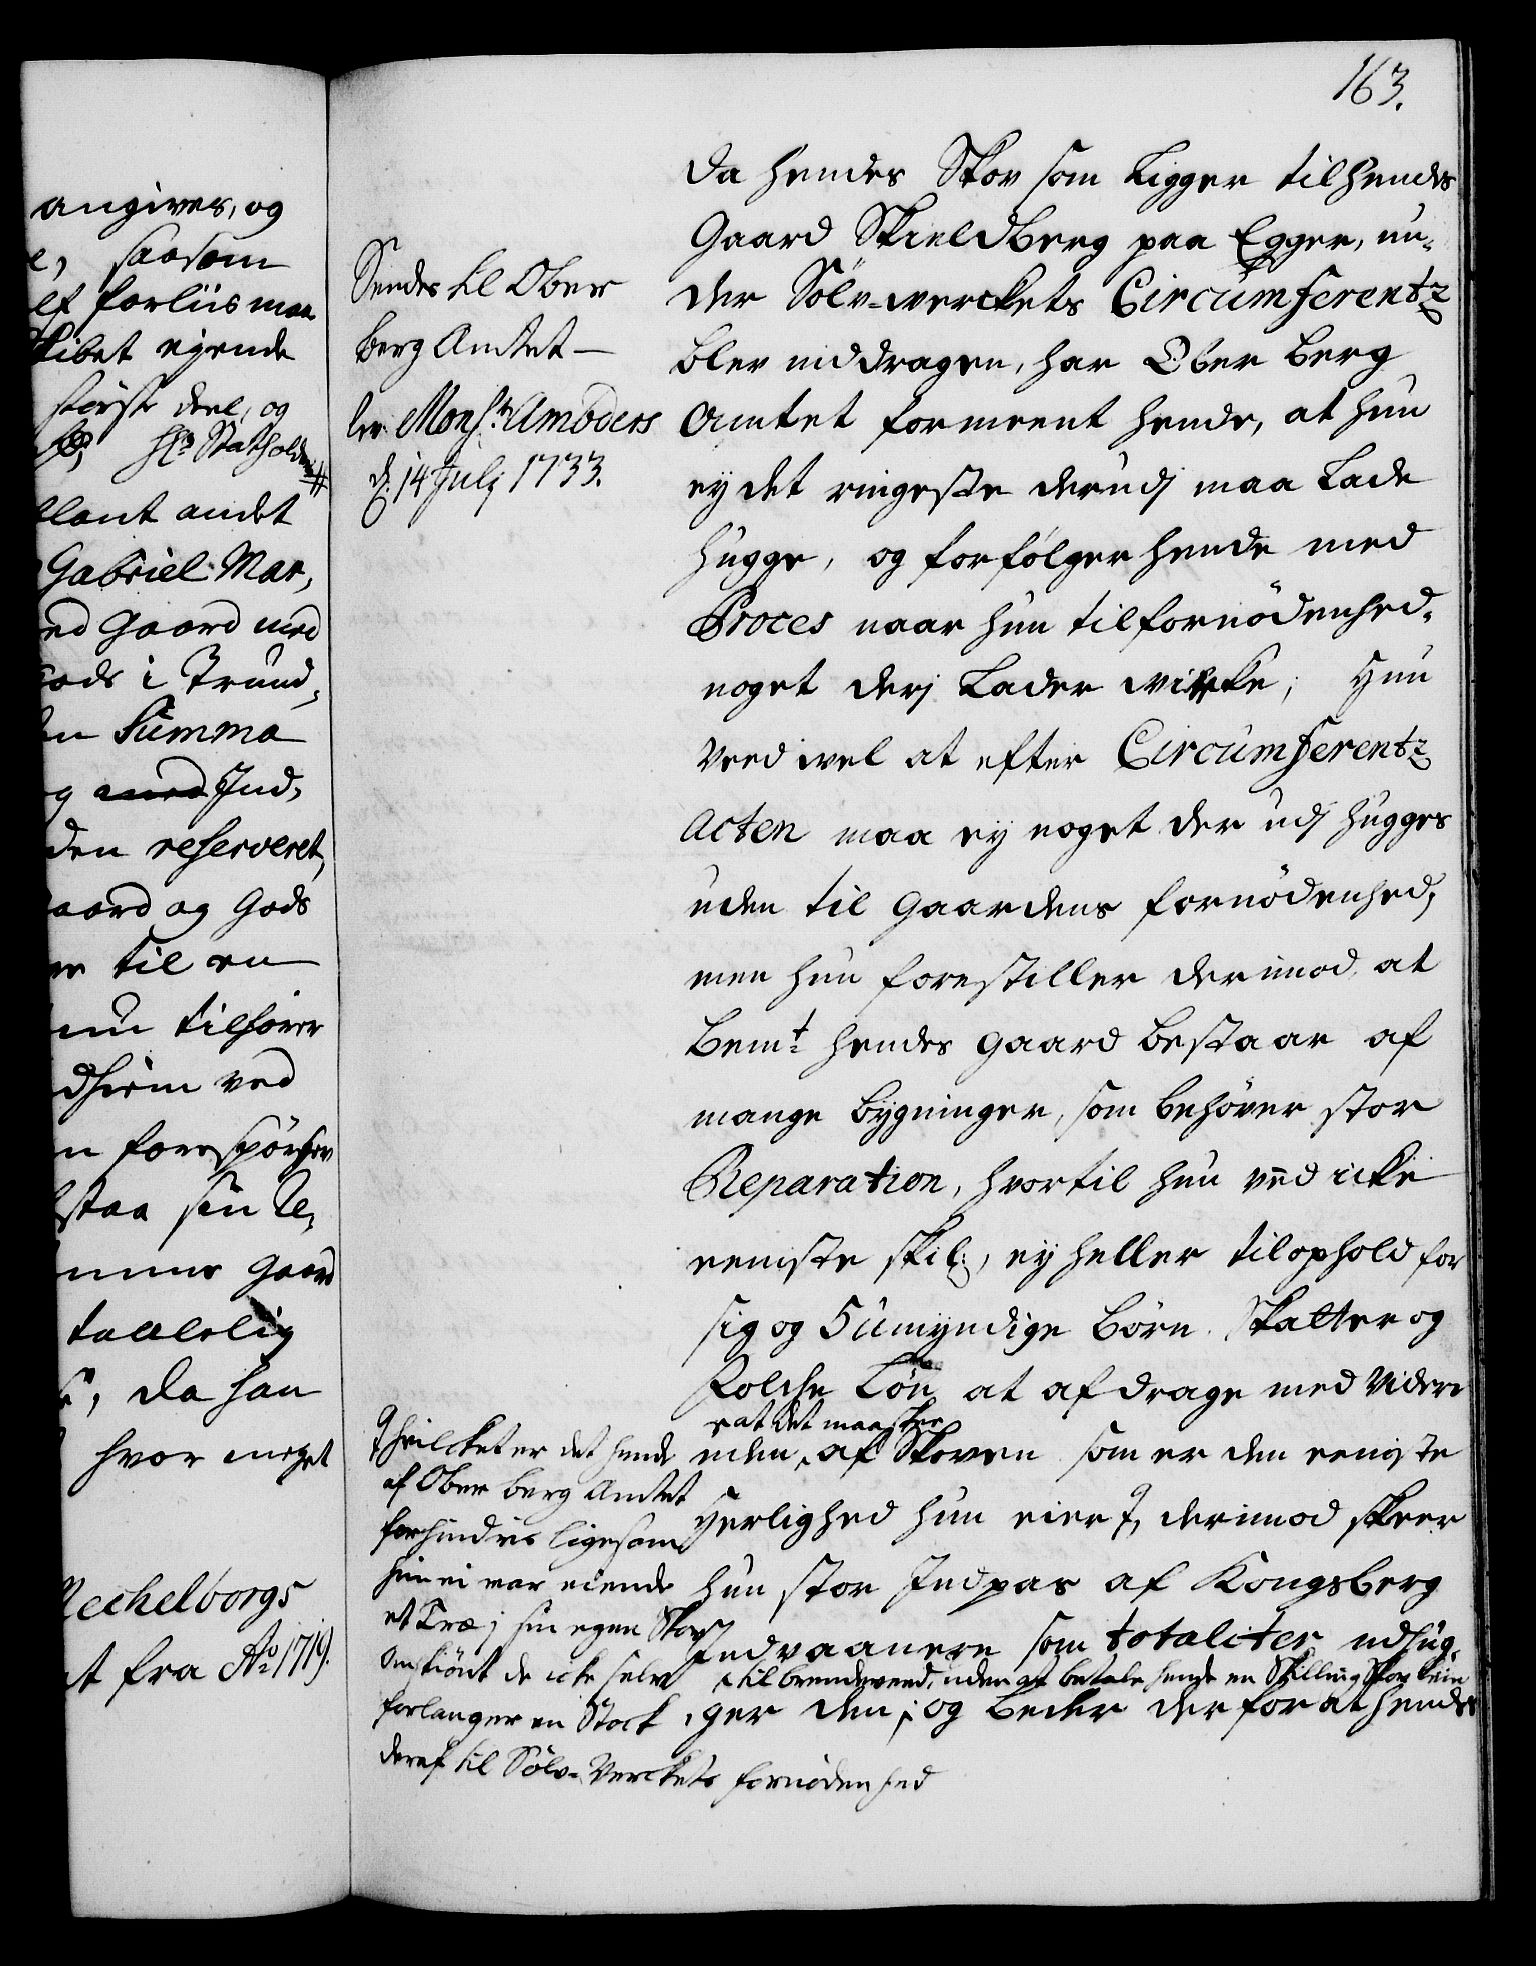 angives, og
saasom
forliis maa
eyende
største deel, og
Hr Statholder
blant andet
Gabriel Mar,
Gaard med
Gods i Trund,
Summa
og med Ind,
den reserveret,
gaard og Gods
til en
nu tilhører
dhiem ved
forespørsel
staa sin
Gaard
taalelig
, da han
hvor meget
Mechelborgs
fra Ao 1719.
163.
Sendes til Ober
berg Amtet —
lev: Monsr: Amböders
d: 14 Julj 1733.
da hendes Skov som Ligger til hendes
Gaard Skieldberg paa Egger, un,
der Sölv-werckets Circumferentz
blev inddragen, har Ober Berg
Amtet formeent hende, at hun
ey det ringeste derudj maa Lade
hugge, og forfølger hende med
Proces naar hun til fornödenhed,
noget derj Lader wircke; Hun
veed wel at efter Circumferentz
Acten maa ey noget der udj hugges
uden til Gaardens fornödenhed,
men hun forestiller derimod, at
Bemt: hendes Gaard bestaar af
mange bygninger, som behöver stor
Reparation, hvortil hun ved icke
eeniste skil:, ey heller til ophold for
sig og 5 umyndige Börn, Skatter og
Folche Lön at afdrage med videre
at det maa skee
uden af Skoven som er den eeniste
Herlighed hun eier, derimod skeer
hun stor Indpas af Kongsberg
Indvaanere som totaliter udhug,
til brendeveed, uden at betale hende en Skilling Skov leie
ger den; og Beder derfor at hendes
hvilcket er det hende
af Ober berg Amtet
forhindres ligesom
hun ei var eiende
et Træ i sin egen Skov
omskiönt de icke selv
forlanger en Stock
deraf til Sölv-Verckets fornödenhed